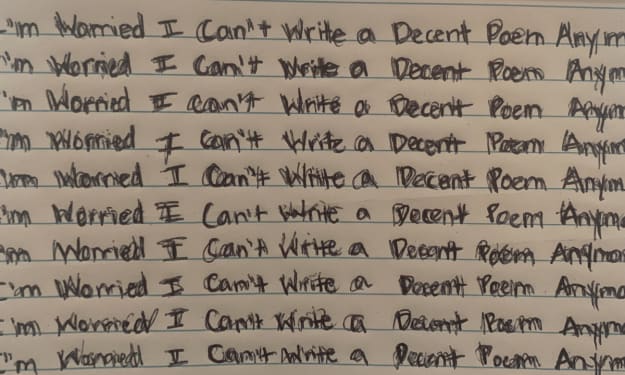 I'm Worried I Can't Write a Decent Poem Anym
I'm Worried I Can't Write a Decent Poem Anym
I'm Worried I Can't Write a Decent Poem Anym
I'm Worried I Can't Write a Decent Poem Anym
I'm Worried I Can't Write a Decent Poem Anym
I'm Worried I Can't Write a Decent Poem Anymo
I'm Worried I Can't Write a Decent Poem Anymo
I'm Worried I Can't Write a Decent Poem Anymo
I'm Worried I Can't Write a Decent Poem Anymo
I'm Worried I Can't Write a Decent Poem Anym